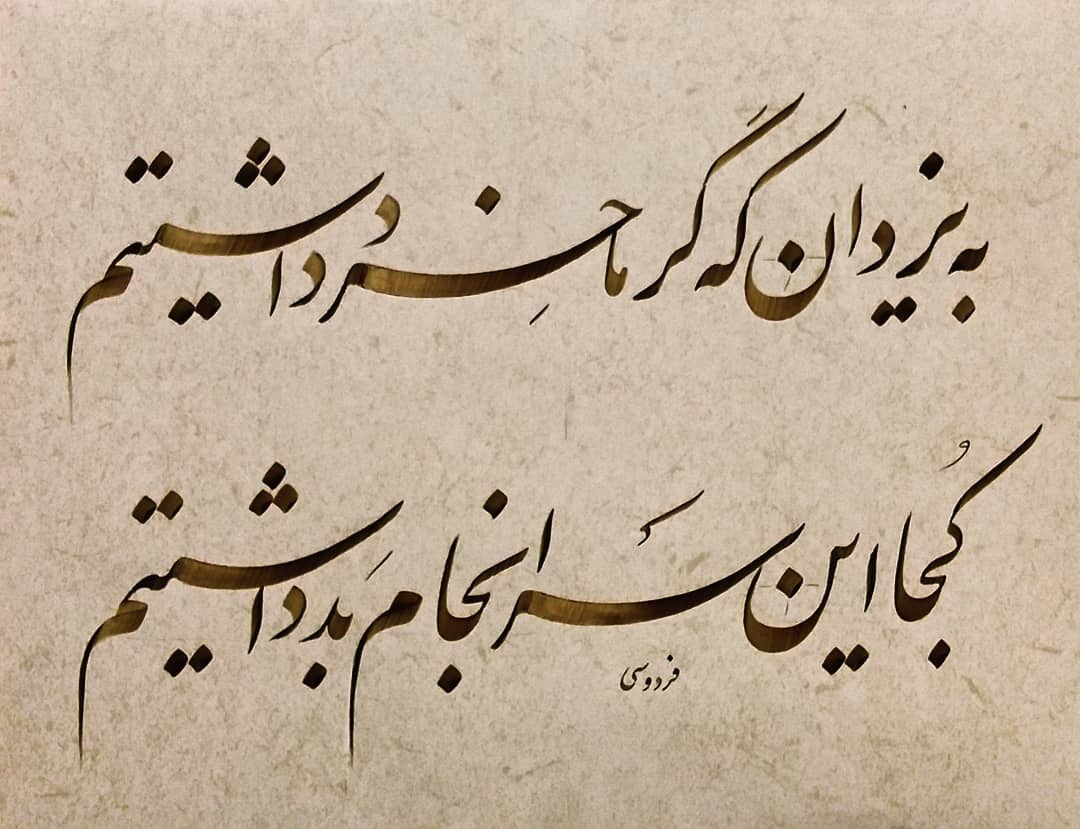 به یزدان که گر ما خِرد داشتیم
کُجا این سرانجام بَد داشتیم
فردوسی